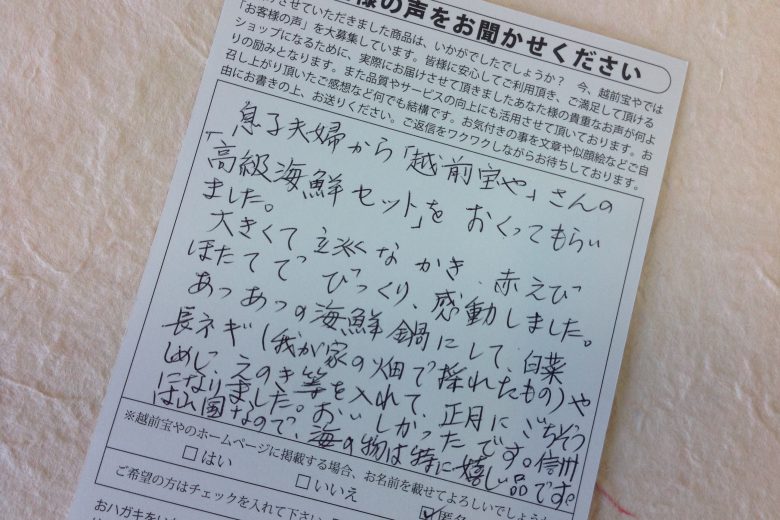 様の声をお聞かせください
させていただきました商品は、いかがでしたでしょうか? 今、越前宝やでは
「お客様の声」を大募集しています。皆様に安心してご利用頂き、ご満足して頂ける
ショップになるために、実際にお届けさせて頂きましたあなた様の貴重なお声が何よ
りの励みとなります。また品質やサービスの向上にも活用させて頂いております。お
召し上がり頂いたご感想など何でも結構です。お気付きの事を文章や似顔絵などご自
由にお書きの上、お送りください。ご返信をワクワクしながらお待ちしております。
息子夫婦から「越前宝や」さんの
「高級海鮮セット」を おくってもらい
ました。
大きくて立派なかき、赤えび
ほたてで びっくり、感動しました。
あつあつの海鮮鍋にして、白菜
長ネギ(我が家の畑で採れたもの)や
しめじ、えのき等を入れて、正月にごちそう
になりました。おいしかったです。信州
は山国なので、海の物は特に嬉しい品です。
※越前宝やのホームページに掲載する場合、お名前を載せてよろしいでしょうか
□はい □いいえ ☑匿名
ご希望の方はチェックを入れて下さい
おハガキをい